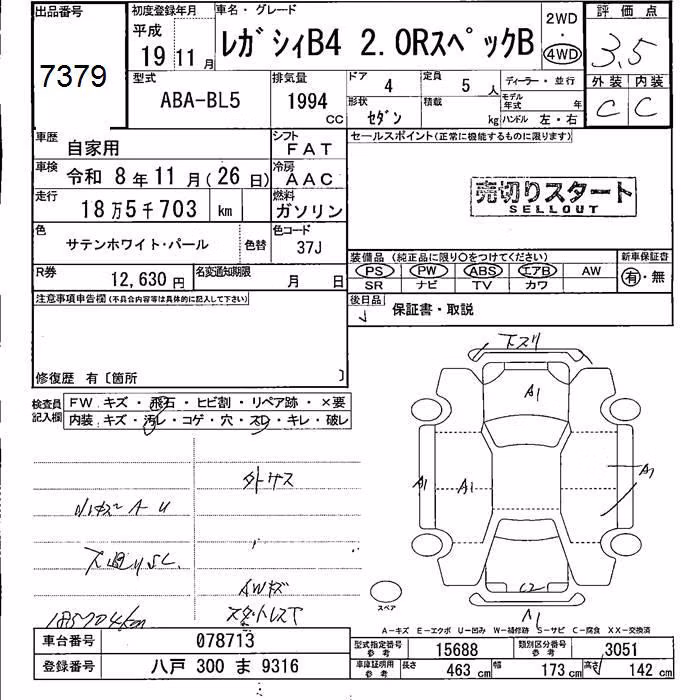 出品番号
7379
初度登録年月
平成
19年11月
車名・グレード
レガシィB4 2.0RスペックB
2WD
・
4WD
評価点
3.5
外装 内装
C C
型式
ABA-BL5
排気量
1994
CC
ドア
4
定員
5 人
ディーラー・並行
形状
セダン
積載
kg
モデル年式
年
ハンドル 左・右
車歴
自家用
シフト
FAT
セールスポイント(正常に機能するものに限ります)
車検
令和 8年11月(26日)
冷房
AAC
売切りスタート
SELLOUT
走行
18万5千703 km
燃料
ガソリン
色
サテンホワイト・パール
色替
色コード
37J
装備品(純正品に限り○をつけてください)
新車保証書
PS PW ABS エアB AW
SR ナビ TV カワ
有・無
R券
12,630円
名変通知期限
月 日
後日品
保証書・取説
注意事項申告欄(不具合内容等は具体的に記入して下さい)
修復歴 有〔箇所 〕
検査員記入欄
FW キズ・飛石・ヒビ割・リペア跡・×要
内装 キズ・汚レ・コゲ・穴・スレ・キレ・破レ
下スリ
A1
A1
A1
A1
C2
A1
スペア
AWキズ
スタットレスT
185704km
A-キズ E-エクボ U-凹み W-補修跡 S-サビ C-腐食 XX-交換済
車台番号
078713
登録番号
八戸 300 ま 9316
型式指定番号
参考
15688
類別区分番号
参考
3051
車庫証明用
参考
長さ
463 cm
幅
173 cm
高さ
142 cm